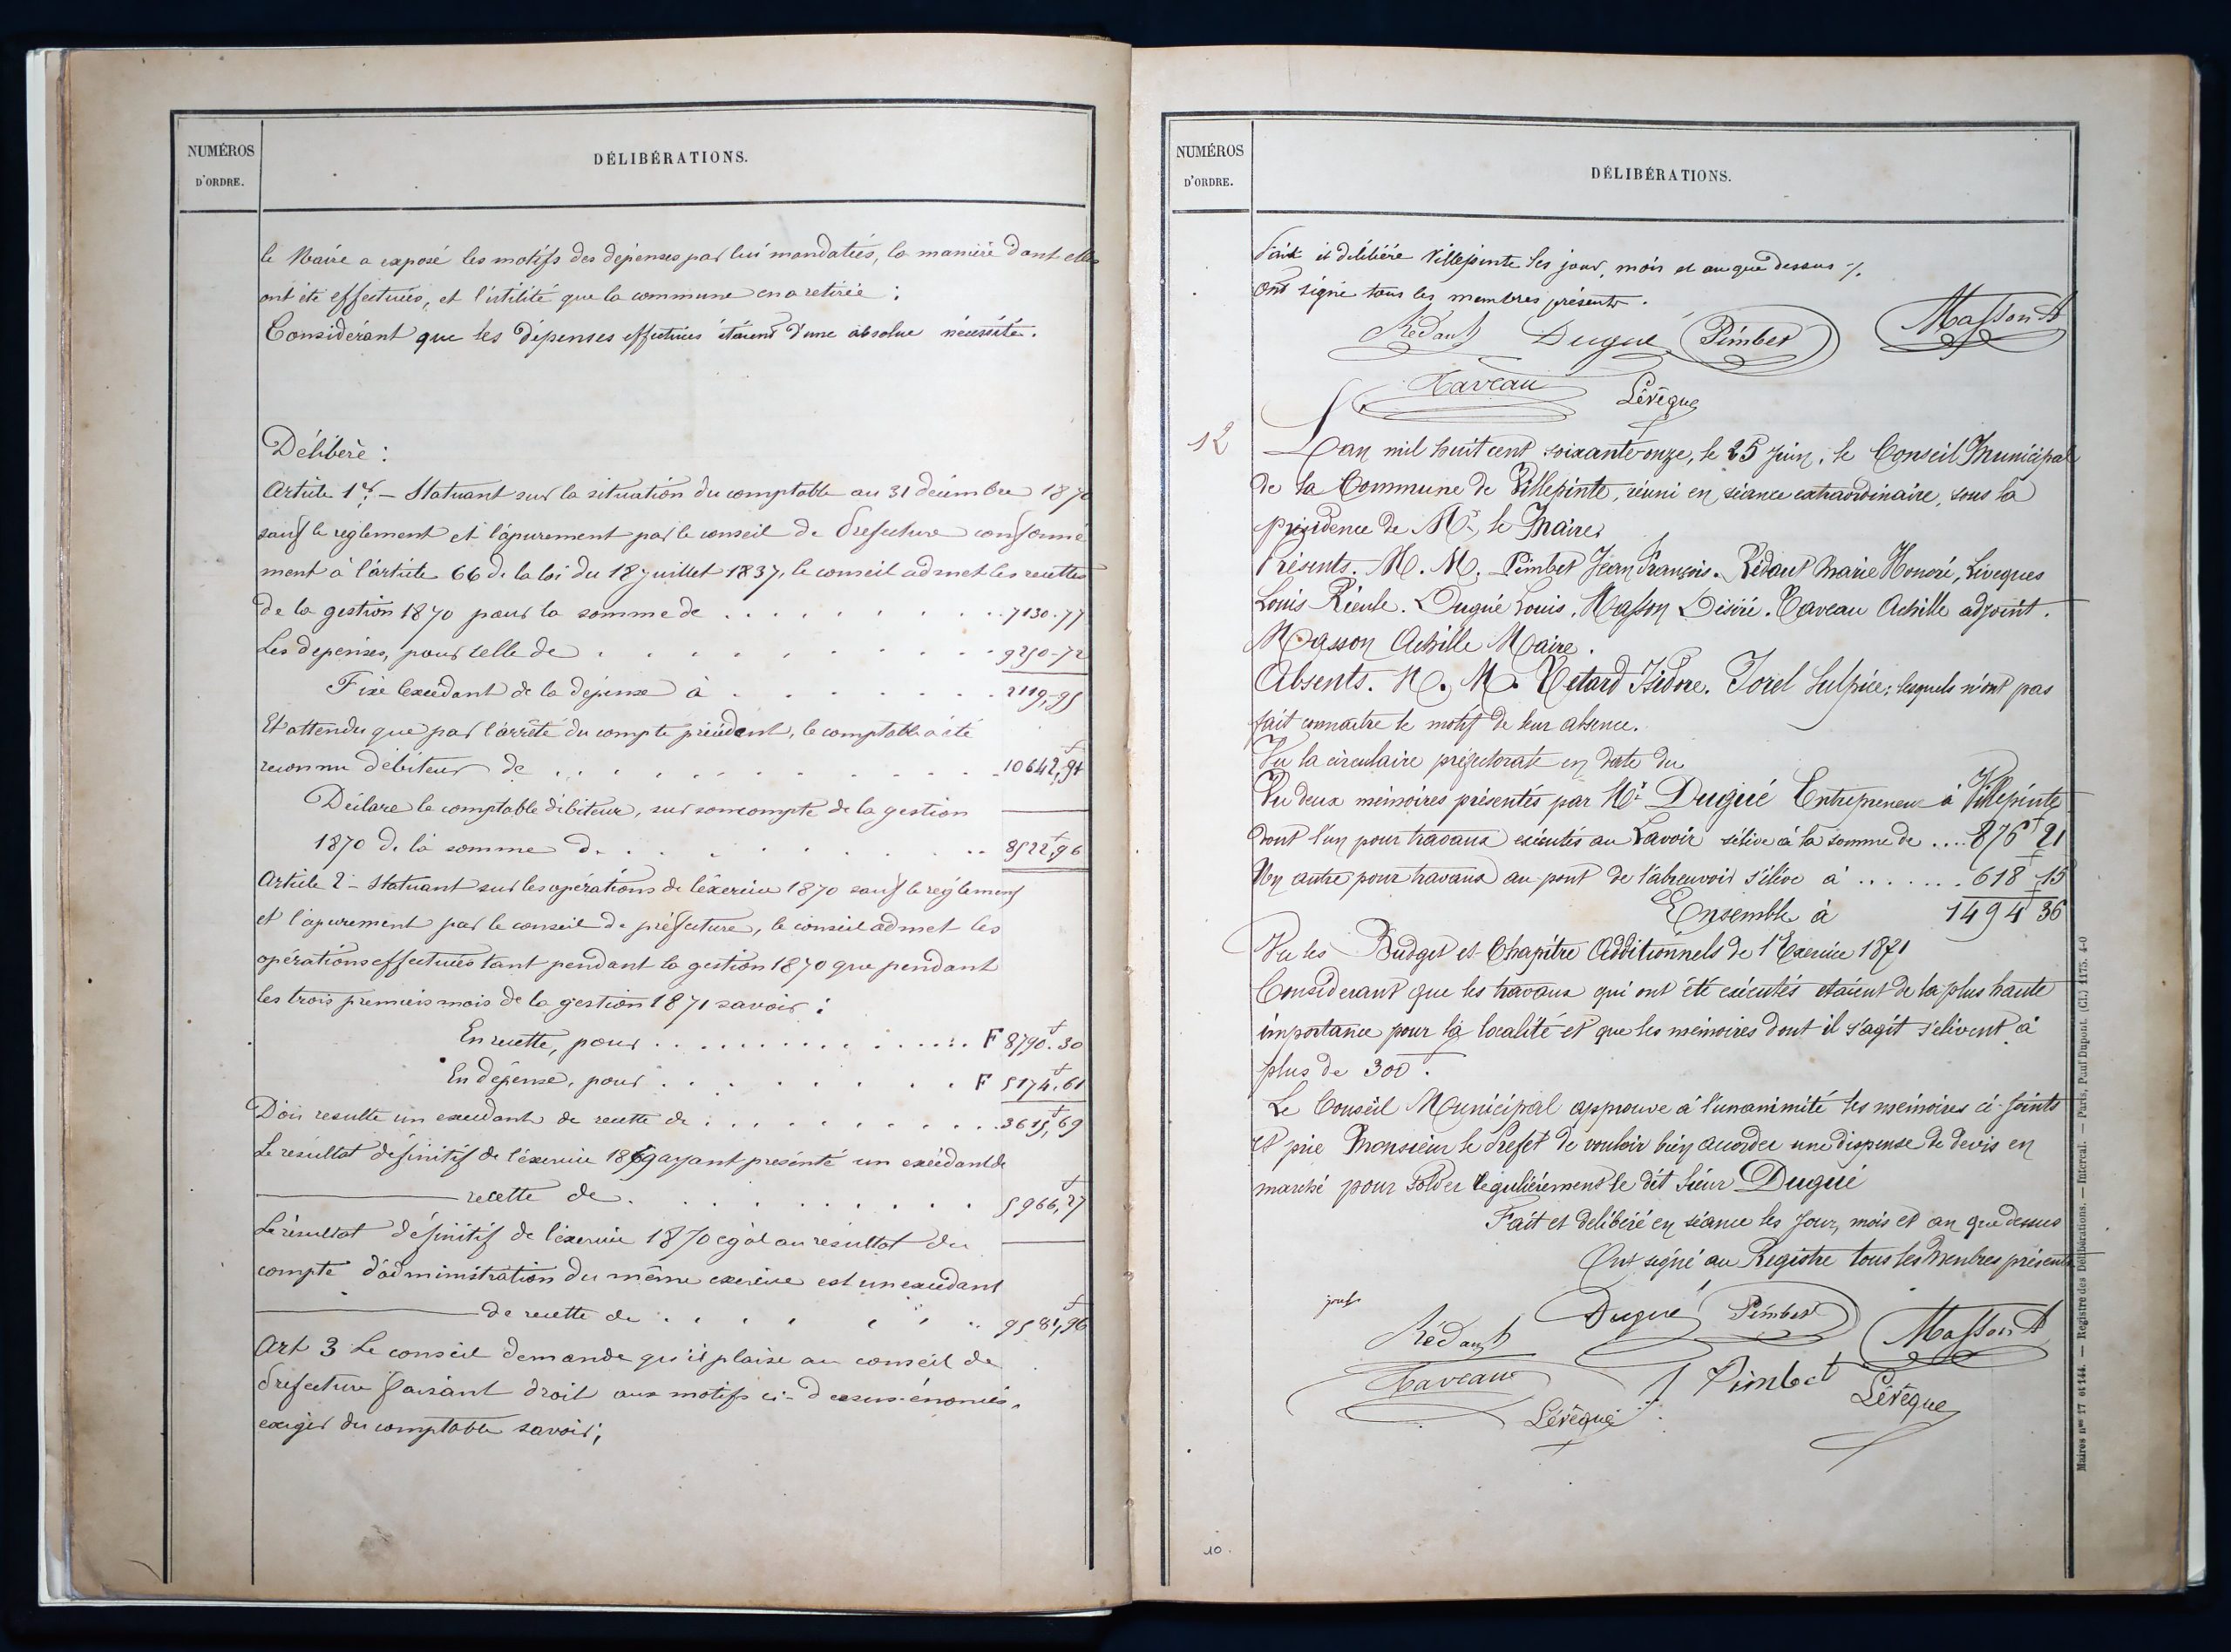 NUMÉROS
D'ORDRE.
DÉLIBÉRATIONS.
le Maire a exposé les motifs des dépenses par lui mandatées, la manière dont elles
ont été effectuées, et l'utilité que la commune en a retirée :
Considérant que les dépenses effectuées étaient d'une absolue nécessité.
Délibère :
Article 1er. — Statuant sur la situation du comptable au 31 décembre 1870
sauf le reglement et l'apurement par le conseil de Prefecture conformé
ment à l'article 66 de la loi du 18 juillet 1837, le conseil admet les recettes
de la gestion 1870 pour la somme de . . . . . . . . 7130.77
Les depenses, pour celle de . . . . . . . . . . 9250-72
Fixe l'excédant de la depense à . . . . . . . 2119,95
Et attendu que par l'arrêté du compte précédent, le comptable a été
reconnu débiteur de . . . . . . . . . . . . 10642,91
Déclare le comptable débiteur, sur son compte de la gestion
1870 de la somme de . . . . . . . . . 8522f,96
Article 2 — Statuant sur les opérations de l'exercice 1870 sauf le règlement
et l'apurement par le conseil de préfecture, le conseil admet les
opérations effectuées tant pendant la gestion 1870 que pendant
les trois premiers mois de la gestion 1871 savoir :
En recette, pour . . . . . . . . . . . . F 8790f.30
En dépense, pour . . . . . . . . F 5174f.61
D'où resulte un excedant de recette de . . . . . . . . . 3615f,69
Le résultat définitif de l'exercice 1869 ayant présenté un excédant de
recette de . . . . . . . . . . 5966f,27
Le résultat définitif de l'exercice 1870 egal au résultat du
compte d'administration du même exercice est un excédant
de recette de . . . . . . . 9581f,96
Art 3 Le conseil demande qu'il plaise au conseil de
Prefecture faisant droit aux motifs ci-dessus énoncés,
exiger du comptable savoir ;
NUMÉROS
D'ORDRE.
DÉLIBÉRATIONS.
Fait et délibéré Villepinte les jour, mois et an que dessus %.
Ont signé tous les membres présents.
Rédaut Dugué Pimbet Masson A
Taveau Lévêque
12
L'an mil huit cent soixante-onze, le 25 Juin, le Conseil Municipal
de la Commune de Villepinte, réuni en séance extraordinaire, sous la
présidence de Mr. le Maire
Présents. M. M. Pimbet Jean François. Rédaut Marie Honoré, Livêques
Louis Rieule. Dugué Louis. Masson Désiré. Taveau Achille adjoint.
Masson Achille Maire.
Absents. M. M. Retard Isidore. Jorel Sulpice, lesquels n'ont pas
fait connaître le motif de leur absence.
Vu la circulaire préfectorale en date du
Vu deux mémoires présentés par Mr. Dugué Entrepreneur à Villepinte
dont l'un pour travaux exécutés au Lavoir s'élève à la somme de .... 876f 21
Un autre pour travaux au pont de l'abreuvoir s'élève à ....... 618f 15
Ensemble à 1494f 36
Vu les Budget et Chapitre Additionnels de l'Exercice 1871
Considerant que les travaux qui ont été exécutés etaient de la plus haute
importance pour la localité et que les mémoires dont il s'agit s'élèvent à
plus de 300f.
Le Conseil Municipal approuve à l'unanimité les mémoires ci-joints
et prie Monsieur le Prefet de vouloir bien accorder une dispense de devis en
marché pour solder régulièrement le dit Sieur Dugué
Fait et délibéré en séance les Jour, mois et an que dessus
Ont signé au Registre tous les Membres présents
Rédaut Dugué Pimbet Masson A
Taveau Pimbet Lévêque
Lévêque
10.
Maires nos 17 et 144. — Registre des Délibérations. — Intercal. — Paris, Paul Dupont. (Cl.) 1175. 4-0